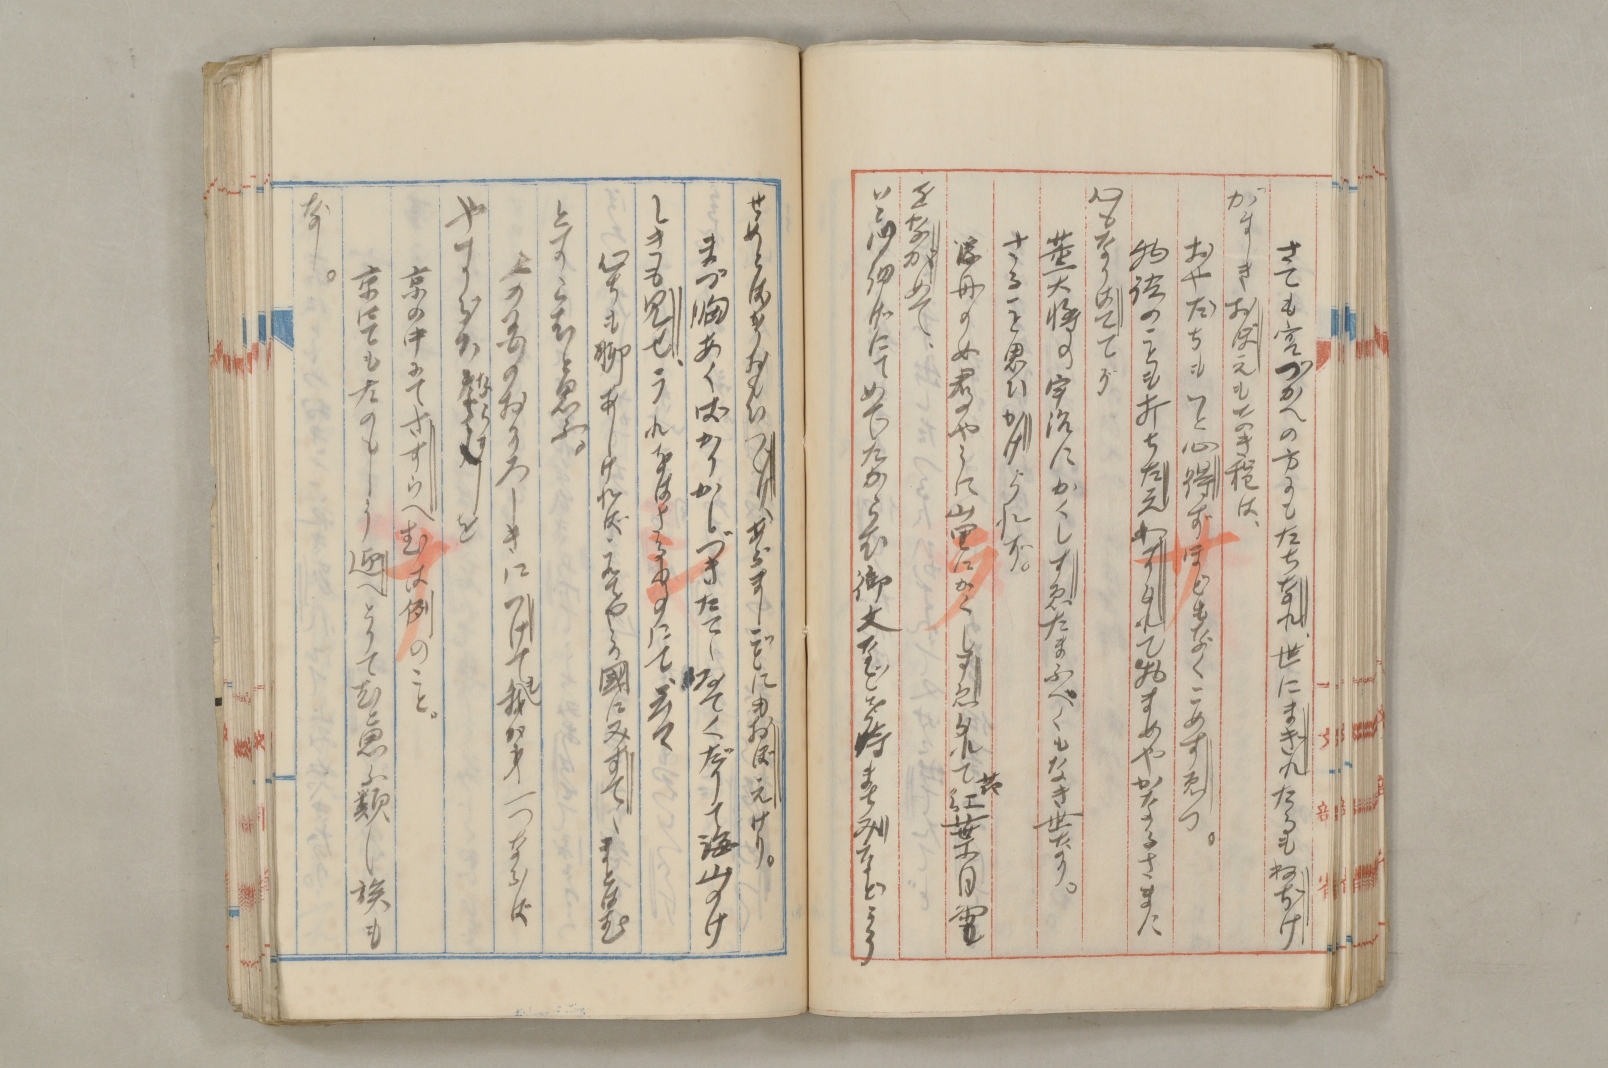 さても宮づかへの方にもたちなれ、世にまぎれたるもねぢけ
がましきおぼえもなき程は、
おやたちもいと心得ずほどもなくこめすゑつ。
物語のことも打ちたえわすられて物まめやかなるさまに
心もなりはてて
薫大将の宇治にかくしすゑたまふべくもなき世なり。
さること思ひかけられず。
浮舟の女君のやうに山里にかくしすゑられて花紅葉月雪
をながめて、
いと心細げにてめでたからむ御文などを時々待ちみなどこそ
せめとばかりおもひつづけ、あらましごとにもおぼえけり。
まづ胸あくばかりかしづきたてゝゐてくだりて海山のけ
しきも見せ、うればさるものにて、
心ちも聊あしければ、この國にみすてゝまどはむ
とすらむと思ふ。
我が身一つならば
やすらかならましを
京の中にてさすらへむは例のこと。
京にてもたのもしう迎へとりてむと思ふ類し族も
なし。